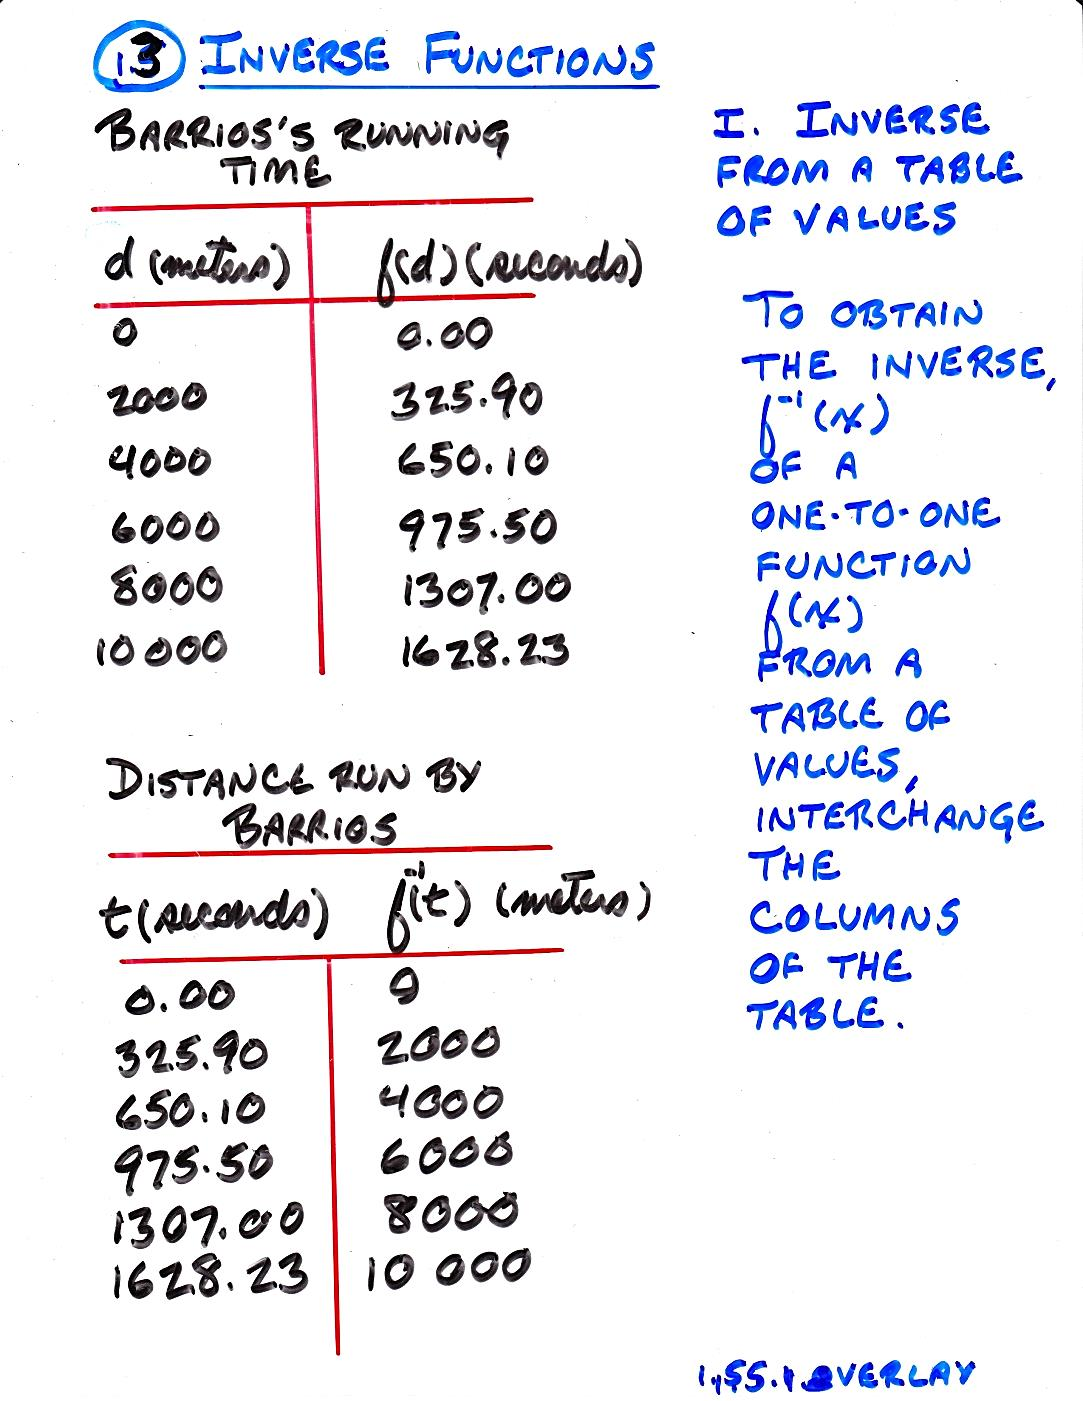 13 INVERSE FUNCTIONS
BARRIOS'S RUNNING
TIME
d (meters) f(d) (seconds)
0 0.00
2000 325.90
4000 650.10
6000 975.50
8000 1307.00
10 000 1628.23
DISTANCE RUN BY
BARRIOS
t (seconds) f⁻¹(t) (meters)
0.00 0
325.90 2000
650.10 4000
975.50 6000
1307.00 8000
1628.23 10 000
I. INVERSE
FROM A TABLE
OF VALUES
TO OBTAIN
THE INVERSE,
f⁻¹(x)
OF A
ONE-TO-ONE
FUNCTION
f(x)
FROM A
TABLE OF
VALUES,
INTERCHANGE
THE
COLUMNS
OF THE
TABLE.
OVERLAY